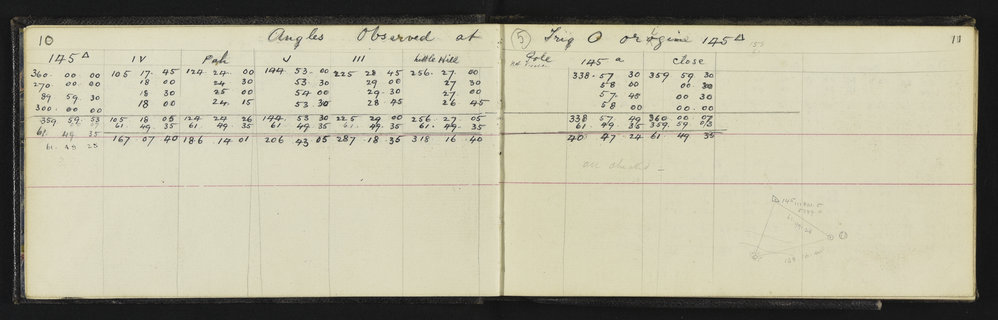 10 Angles Observed at (5) Trig O origine 145 Δ 11
145 Δ IV Pah V III Little Hill Pole 145 a Close
360 00 00 105 17 45 124 24 00 144 53 00 225 28 45 256 27 00 338 57 30 359 59 30
270 00 00 18 00 24 30 53 30 29 00 27 30 58 00 00 30
89 59 30 18 30 25 00 54 00 29 30 27 00 57 45 00 30
300 00 00 18 00 24 15 53 30 28 45 26 45 58 00 00 00
359 59 53 105 18 05 124 24 26 144 53 30 225 29 00 256 27 05 338 57 49 360 00 07
61 49 35 61 49 35 61 49 35 61 49 35 61 49 35 61 49 35 61 49 35 359 59
61 49 25 167 07 40 186 14 01 206 43 05 287 18 35 318 16 40 40 47 24 61 49 35
145